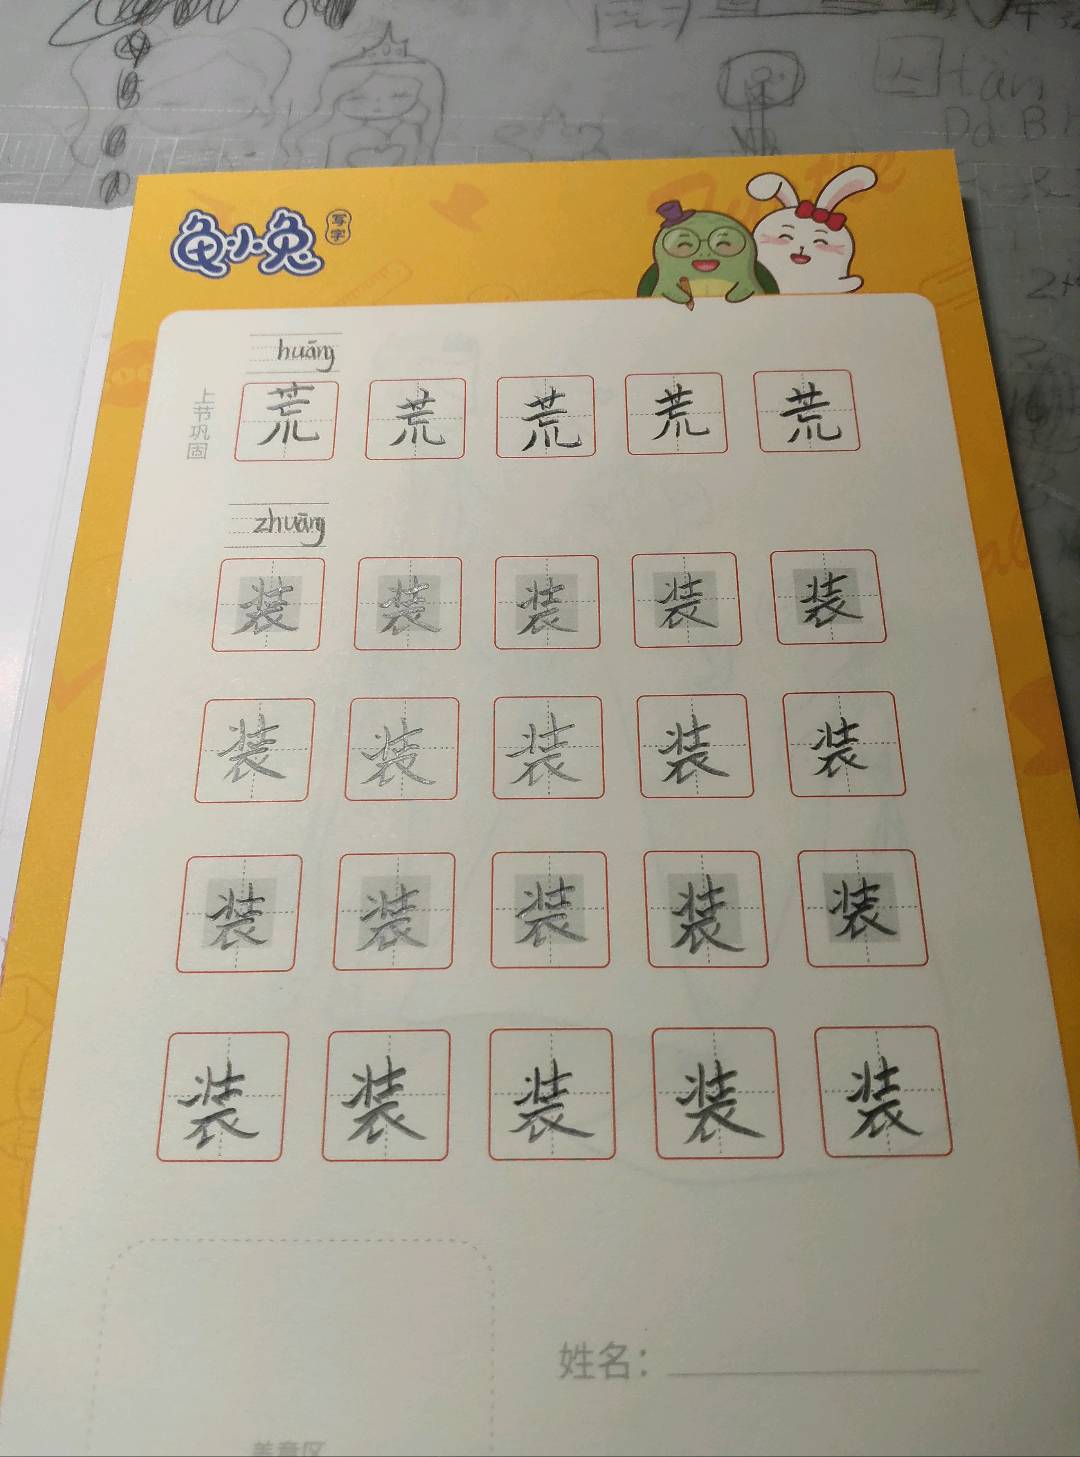 龟小兔 写字
huāng
上节巩固
荒 荒 荒 荒 荒
zhuāng
装 装 装 装 装
装 装 装 装 装
装 装 装 装 装
装 装 装 装 装
姓名：
盖章区